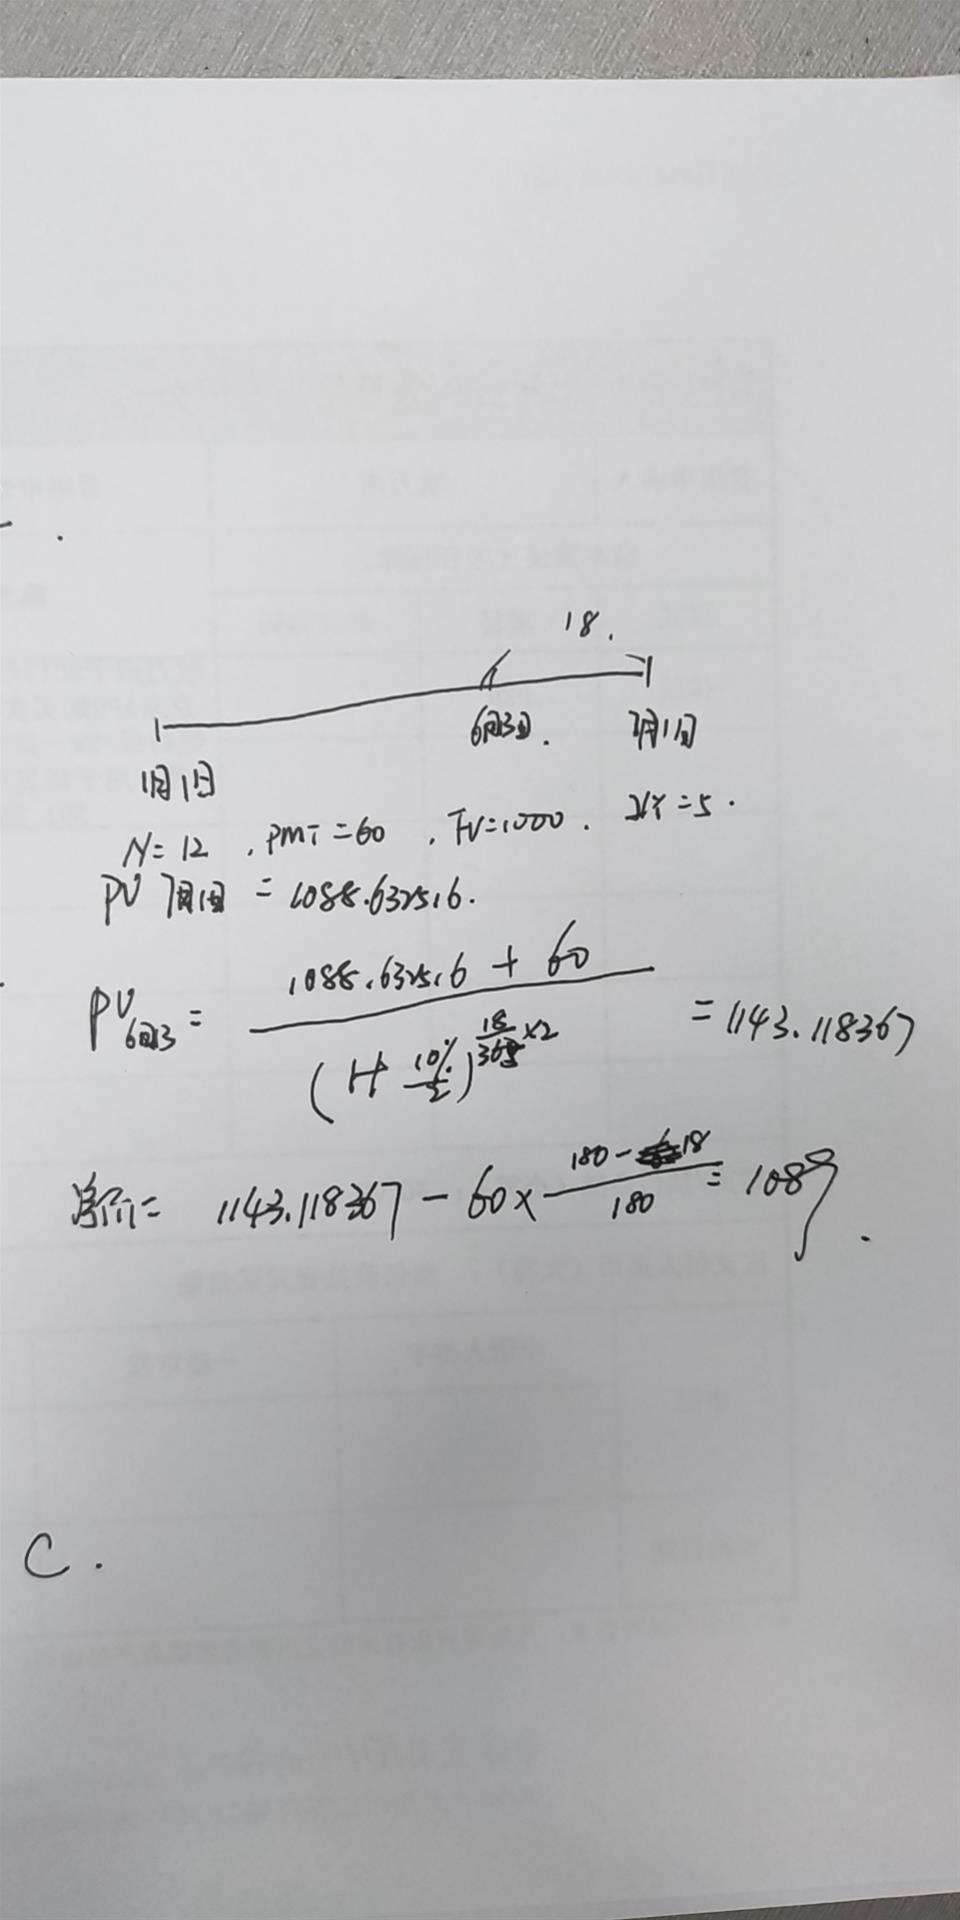 18.
6月13日.
7月1日
1月1日
N=12 , PMT=60 , FV=1000 . I/Y=5.
PV 7月1日 = 1088.632516.
PV6月13 = (1088.632516 + 60) / (1+ 10%/2)^(18/360 ×2) = 1143.118367
净价= 1143.118367 - 60× (180-18)/180 = 1089.
C.